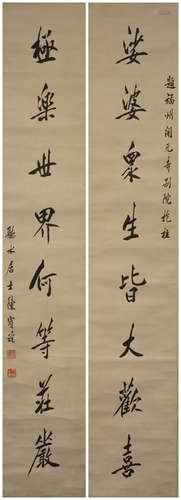 題福州開元寺別院抱柱
娑婆衆生皆大歡喜
極樂世界何等莊嚴
聽水居士陳寶琛